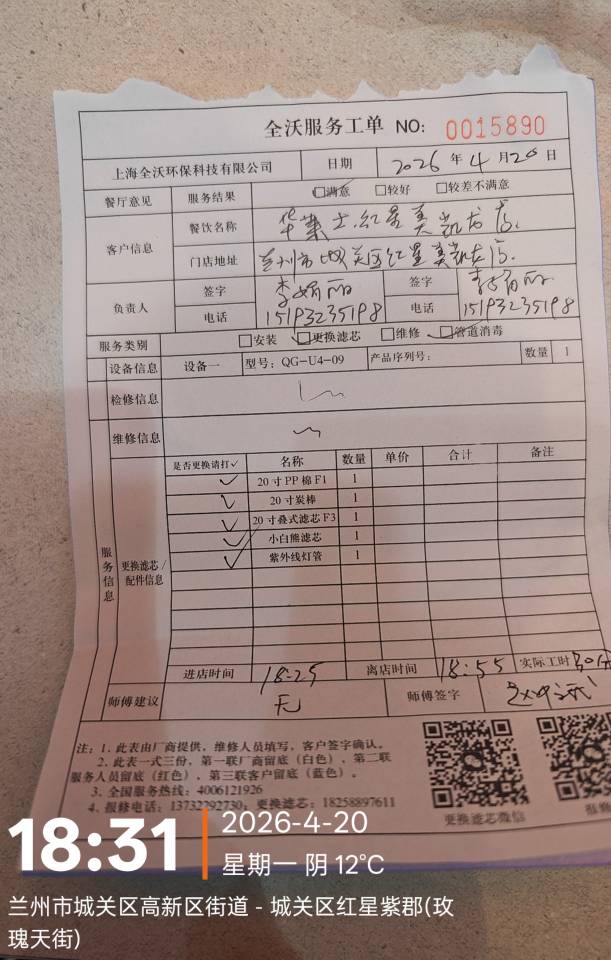 全沃服务工单 NO: 0015890
上海全沃环保科技有限公司 日期 2026年4月20日
餐厅意见 服务结果 ☑满意 □较好 □较差不满意
客户信息 餐饮名称 华莱士红星美凯龙店
门店地址 兰州市城关区红星美凯龙店
负责人 签字 李娟丽 签字 李娟丽
电话 15193235198 电话 15193235198
服务类别 □安装 ☑更换滤芯 □维修 ☑管道消毒
设备信息 设备一 型号: QG-U4-09 产品序列号: 数量 1
检修信息
维修信息
服务信息
更换滤芯/配件信息
是否更换请打✓ 名称 数量 单价 合计 备注
✓ 20寸PP棉F1 1
✓ 20寸炭棒 1
✓ 20寸叠式滤芯F3 1
✓ 小白熊滤芯 1
✓ 紫外线灯管 1
进店时间 18:25 离店时间 18:55 实际工时 30分
师傅建议 无 师傅签字
注: 1. 此表由厂商提供, 维修人员填写, 客户签字确认。
2. 此表一式三份, 第一联厂商留底(白色), 第二联
服务人员留底(红色), 第三联客户留底(蓝色)。
3. 全国服务热线: 4006121926
4. 报修电话: 13732292730; 更换滤芯: 18258897611
更换滤芯微信
报修
18:31
2026-4-20
星期一 阴 12℃
兰州市城关区高新区街道 - 城关区红星紫郡(玫
瑰天街)